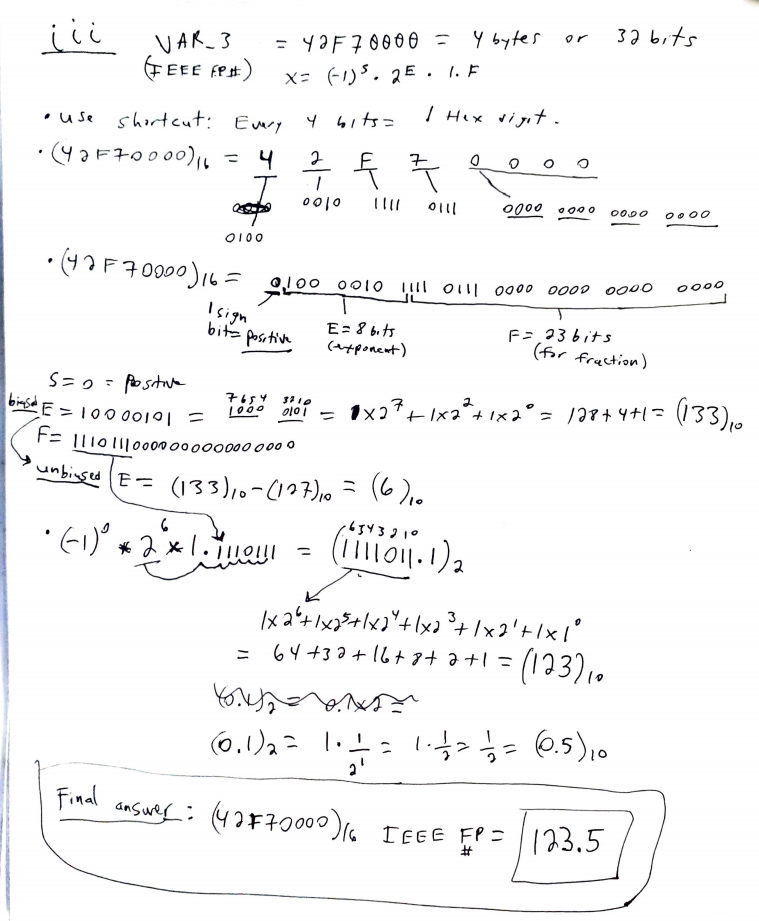 iii VAR_3 = 42F70000 = 4 bytes or 32 bits
(IEEE FP#) X= (-1)^S · 2^E · 1.F
• use shortcut: Every 4 bits = 1 Hex digit.
• (42F70000)16 = 4 2 F 7 0 0 0 0
0010 1111 0111 0000 0000 0000 0000
0100
• (42F70000)16 = 0100 0010 1111 0111 0000 0000 0000 0000
1 sign bit = positive
E = 8 bits (exponent)
F = 23 bits (for fraction)
S = 0 = Positive
7654 3210
biased E = 10000101 = 1000 0101 = 1x2^7 + 1x2^2 + 1x2^0 = 128+4+1 = (133)10
F= 11101110000000000000000
unbiased E = (133)10 - (127)10 = (6)10
6543210
• (-1)^0 * 2^6 * 1.1110111 = (1111011.1)2
1x2^6+1x2^5+1x2^4+1x2^3+1x2^1+1x1^0
= 64+32+16+8+2+1 = (123)10
(0.1)2 = 1·1/2^1 = 1·1/2 = 1/2 = (0.5)10
Final answer: (42F70000)16 IEEE FP # = 123.5